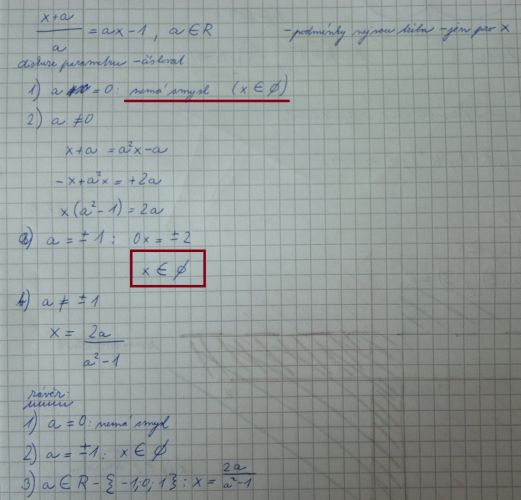 x+a/a = ax-1, a ∈ R - podmínky nejsou třeba - jen pro x
diskuze parametru - číslovat
1) a = 0: nemá smysl (x ∈ ∅)
2) a ≠ 0
x+a = a²x-a
-x+a²x = +2a
x(a²-1) = 2a
a) a = ±1: 0x = ±2
x ∈ ∅
b) a ≠ ±1
x = 2a/a²-1
závěr:
1) a = 0: nemá smysl
2) a = ±1: x ∈ ∅
3) a ∈ R - {-1; 0; 1}: x = 2a/a²-1